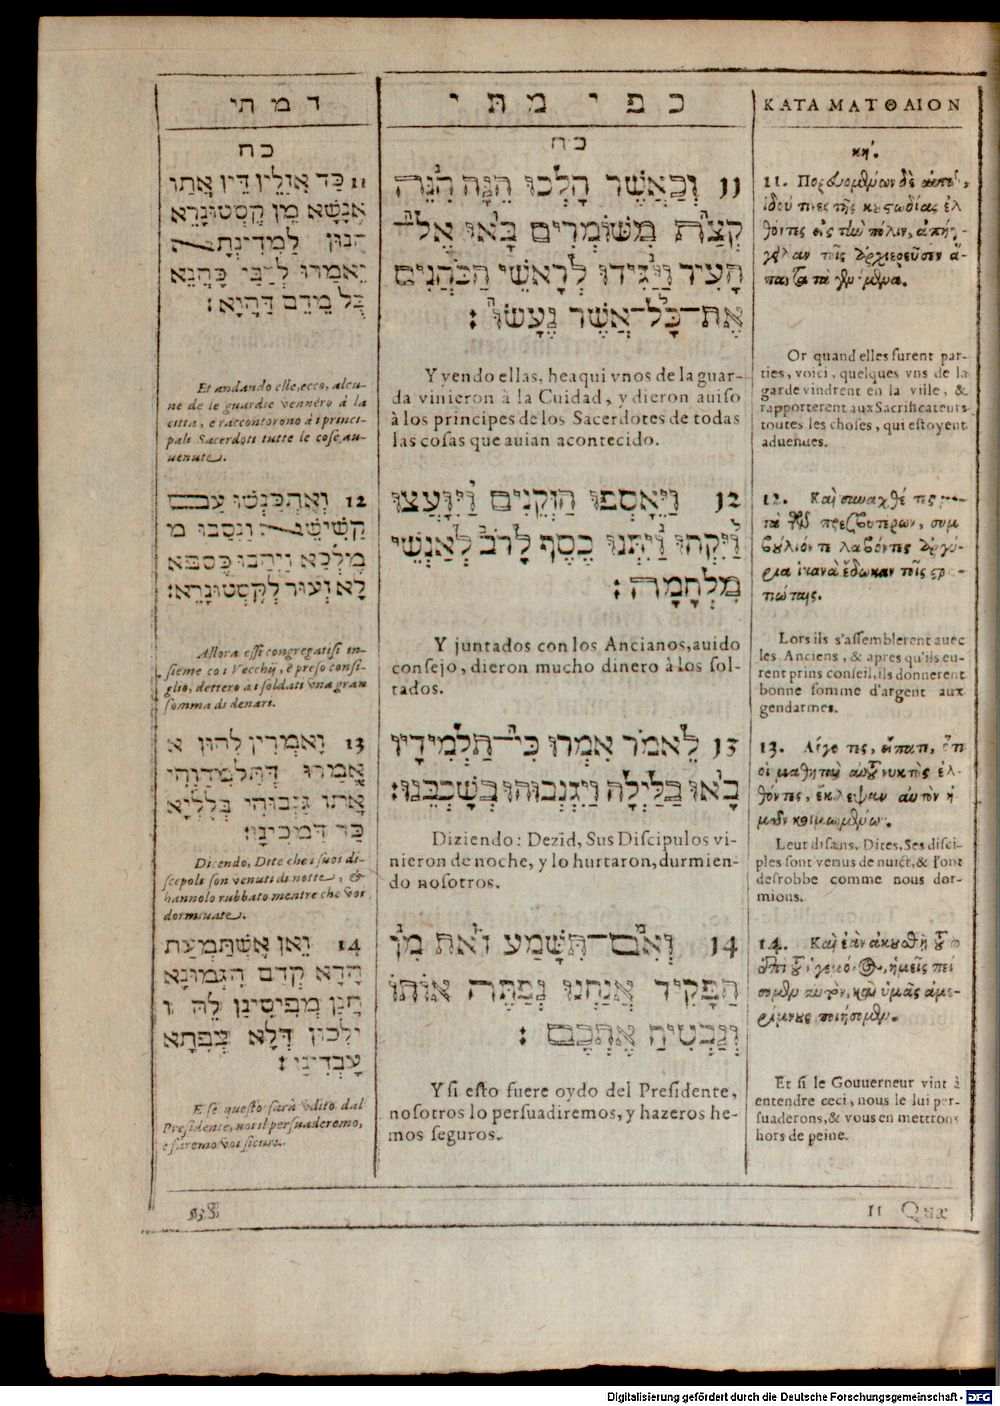 ד מ תי
כח
11 כַּד אֲזַלֵין דֵּין אֲתַו
אֲנָשָׁא מֵן קֻסְטוּנָרֵא
הָנוּן לַמְדִינְתָּה
וֵאמַרוּ לְרַבַּי כָּהֲנֵא
כֻּל מֵדֵם דַּהֲוָא׃
Et andando elle, ecco, alcu-
ne de le guardie vennero à la
citta, e raccontorono à i princi-
pali Sacerdoti tutte le cose au-
uenute.
12 וֵאתְכַּנְשׁוּ עַם
קַשִׁישֵׁא וַנְסַבוּ מ
מֵלְכָא וְיַהֲבוּ כֵּסְפָּא
לָא זְעוּר לְקֻסְטוּנָרֵא׃
Allora essi congregatisi in-
sieme co i Vecchij, e preso consi-
glio, dettero a i soldati vna gran
somma di denari.
13 וָאמְרִין לְהוּן א
אֵמַרוּ דְּתַלְמִידַוְהִי
אֲתַו גַּנְבוּהִי בְּלִלְיָא
כַּד דַּמְכִינַן׃
Dicendo, Dite che i suoi di-
scepoli son venuti di notte, &
hannolo rubbato mentre che voi
dormiuate.
14 וֵאן אֵשְׁתַּמְעַת
הָדֵא קְדָם הִגְמוּנָא
חְנַן מְפִיסִינַן לֵהּ ו
ולְכוּן דְּלָא צֵפְתָא
עָבְדִינַן׃
E se questo sarà vdito dal
Presidente, noi il persuaderemo,
e faremo voi sicuri.
כ פ י מ ת י
כח
11 וְכַאֲשֶׁר הָלְכוּ הֵנָּה הִנֵּה
קְצָת מִשּׁוֹמְרִים בָּאוּ אֶל־
הָעִיר וַיַּגִּידוּ לְרָאשֵׁי הַכֹּהֲנִים
אֶת־כָּל־אֲשֶׁר נֶעָשׂוּ׃
Y yendo ellas, heaqui vnos de la guar-
da vinieron à la Cuidad, y dieron auiso
à los principes de los Sacerdotes de todas
las cosas que auian acontecido.
12 וַיֵּאָסְפוּ הַזְּקֵנִים וַיִּוָּעֲצוּ
וַיִּקְחוּ וַיִּתְּנוּ כֶסֶף לָרֹב לְאַנְשֵׁי
מִלְחָמָה׃
Y juntados con los Ancianos, auido
consejo, dieron mucho dinero à los sol-
dados.
13 לֵאמֹר אִמְרוּ כִּי־תַלְמִידָיו
בָּאוּ בַּלַּיְלָה וַיִּגְנְבוּהוּ בְּשָׁכְבֵּנוּ׃
Diziendo: Dezid, Sus Discipulos vi-
nieron de noche, y lo hurtaron, durmien-
do nosotros.
14 וְאִם־תִּשָּׁמַע זֹאת מִן
הַפָּקִיד אֲנַחְנוּ נְפַתֶּה אוֹתוֹ
וְנַבְטִיחַ אֶתְכֶם׃
Y si esto fuere oydo del Presidente,
nosotros lo persuadiremos, y hazeros he-
mos seguros.
ΚΑΤΑ ΜΑΤΘΑΙΟΝ
κη΄.
11. Πορευομένων δὲ αὐτῶν,
ἰδού τινες τῆς κουστωδίας ἐλ
θόντες εἰς τὴν πόλιν, ἀπήγ-
γειλαν τοῖς ἀρχιερεῦσιν ἅ-
παντα τὰ γενόμενα.
Or quand elles furent par-
ties, voici, quelques vns de la
garde vindrent en la ville, &
rapporterent aux Sacrificateurs
toutes les choses, qui estoyent
aduenues.
12. Καὶ συναχθέντες με-
τὰ τῶν πρεσβυτέρων, συμ
βούλιόν τε λαβόντες ἀργύ-
ρια ἱκανὰ ἔδωκαν τοῖς στρα-
τιώταις.
Lors ils s'assemblerent auec
les Anciens, & apres qu'ils eu-
rent prins conseil, ils donnerent
bonne somme d'argent aux
gendarmes.
13. Λέγοντες, εἴπατε, ὅτι
οἱ μαθηταὶ αὐτοῦ νυκτὸς ἐλ-
θόντες, ἔκλεψαν αὐτὸν ἡ
μῶν κοιμωμένων.
Leur disans, Dites, Ses disci-
ples sont venus de nuict, & l'ont
desrobbe comme nous dor-
mions.
14. Καὶ ἐὰν ἀκουσθῇ τοῦτο
ἐπὶ τοῦ ἡγεμόνος, ἡμεῖς πεί
σομεν αὐτὸν, καὶ ὑμᾶς ἀμε-
ρίμνους ποιήσομεν.
Et si le Gouuerneur vint à
entendre ceci, nous le lui per-
suaderons, & vous en mettrons
hors de peine.
11 Quæ
Digitalisierung gefördert durch die Deutsche Forschungsgemeinschaft - DFG